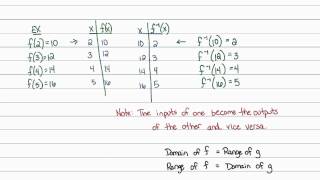 EX x f(x) x f⁻¹(x)
f(2) = 10 2 10 10 2 ← f⁻¹(10) = 2
f(3) = 12 3 12 12 3 f⁻¹(12) = 3
f(4) = 14 4 14 14 4 f⁻¹(14) = 4
f(5) = 16 5 16 16 5 f⁻¹(16) = 5
Note: The inputs of one become the outputs
of the other and vice versa.
Domain of f = Range of g
Range of f = Domain of g